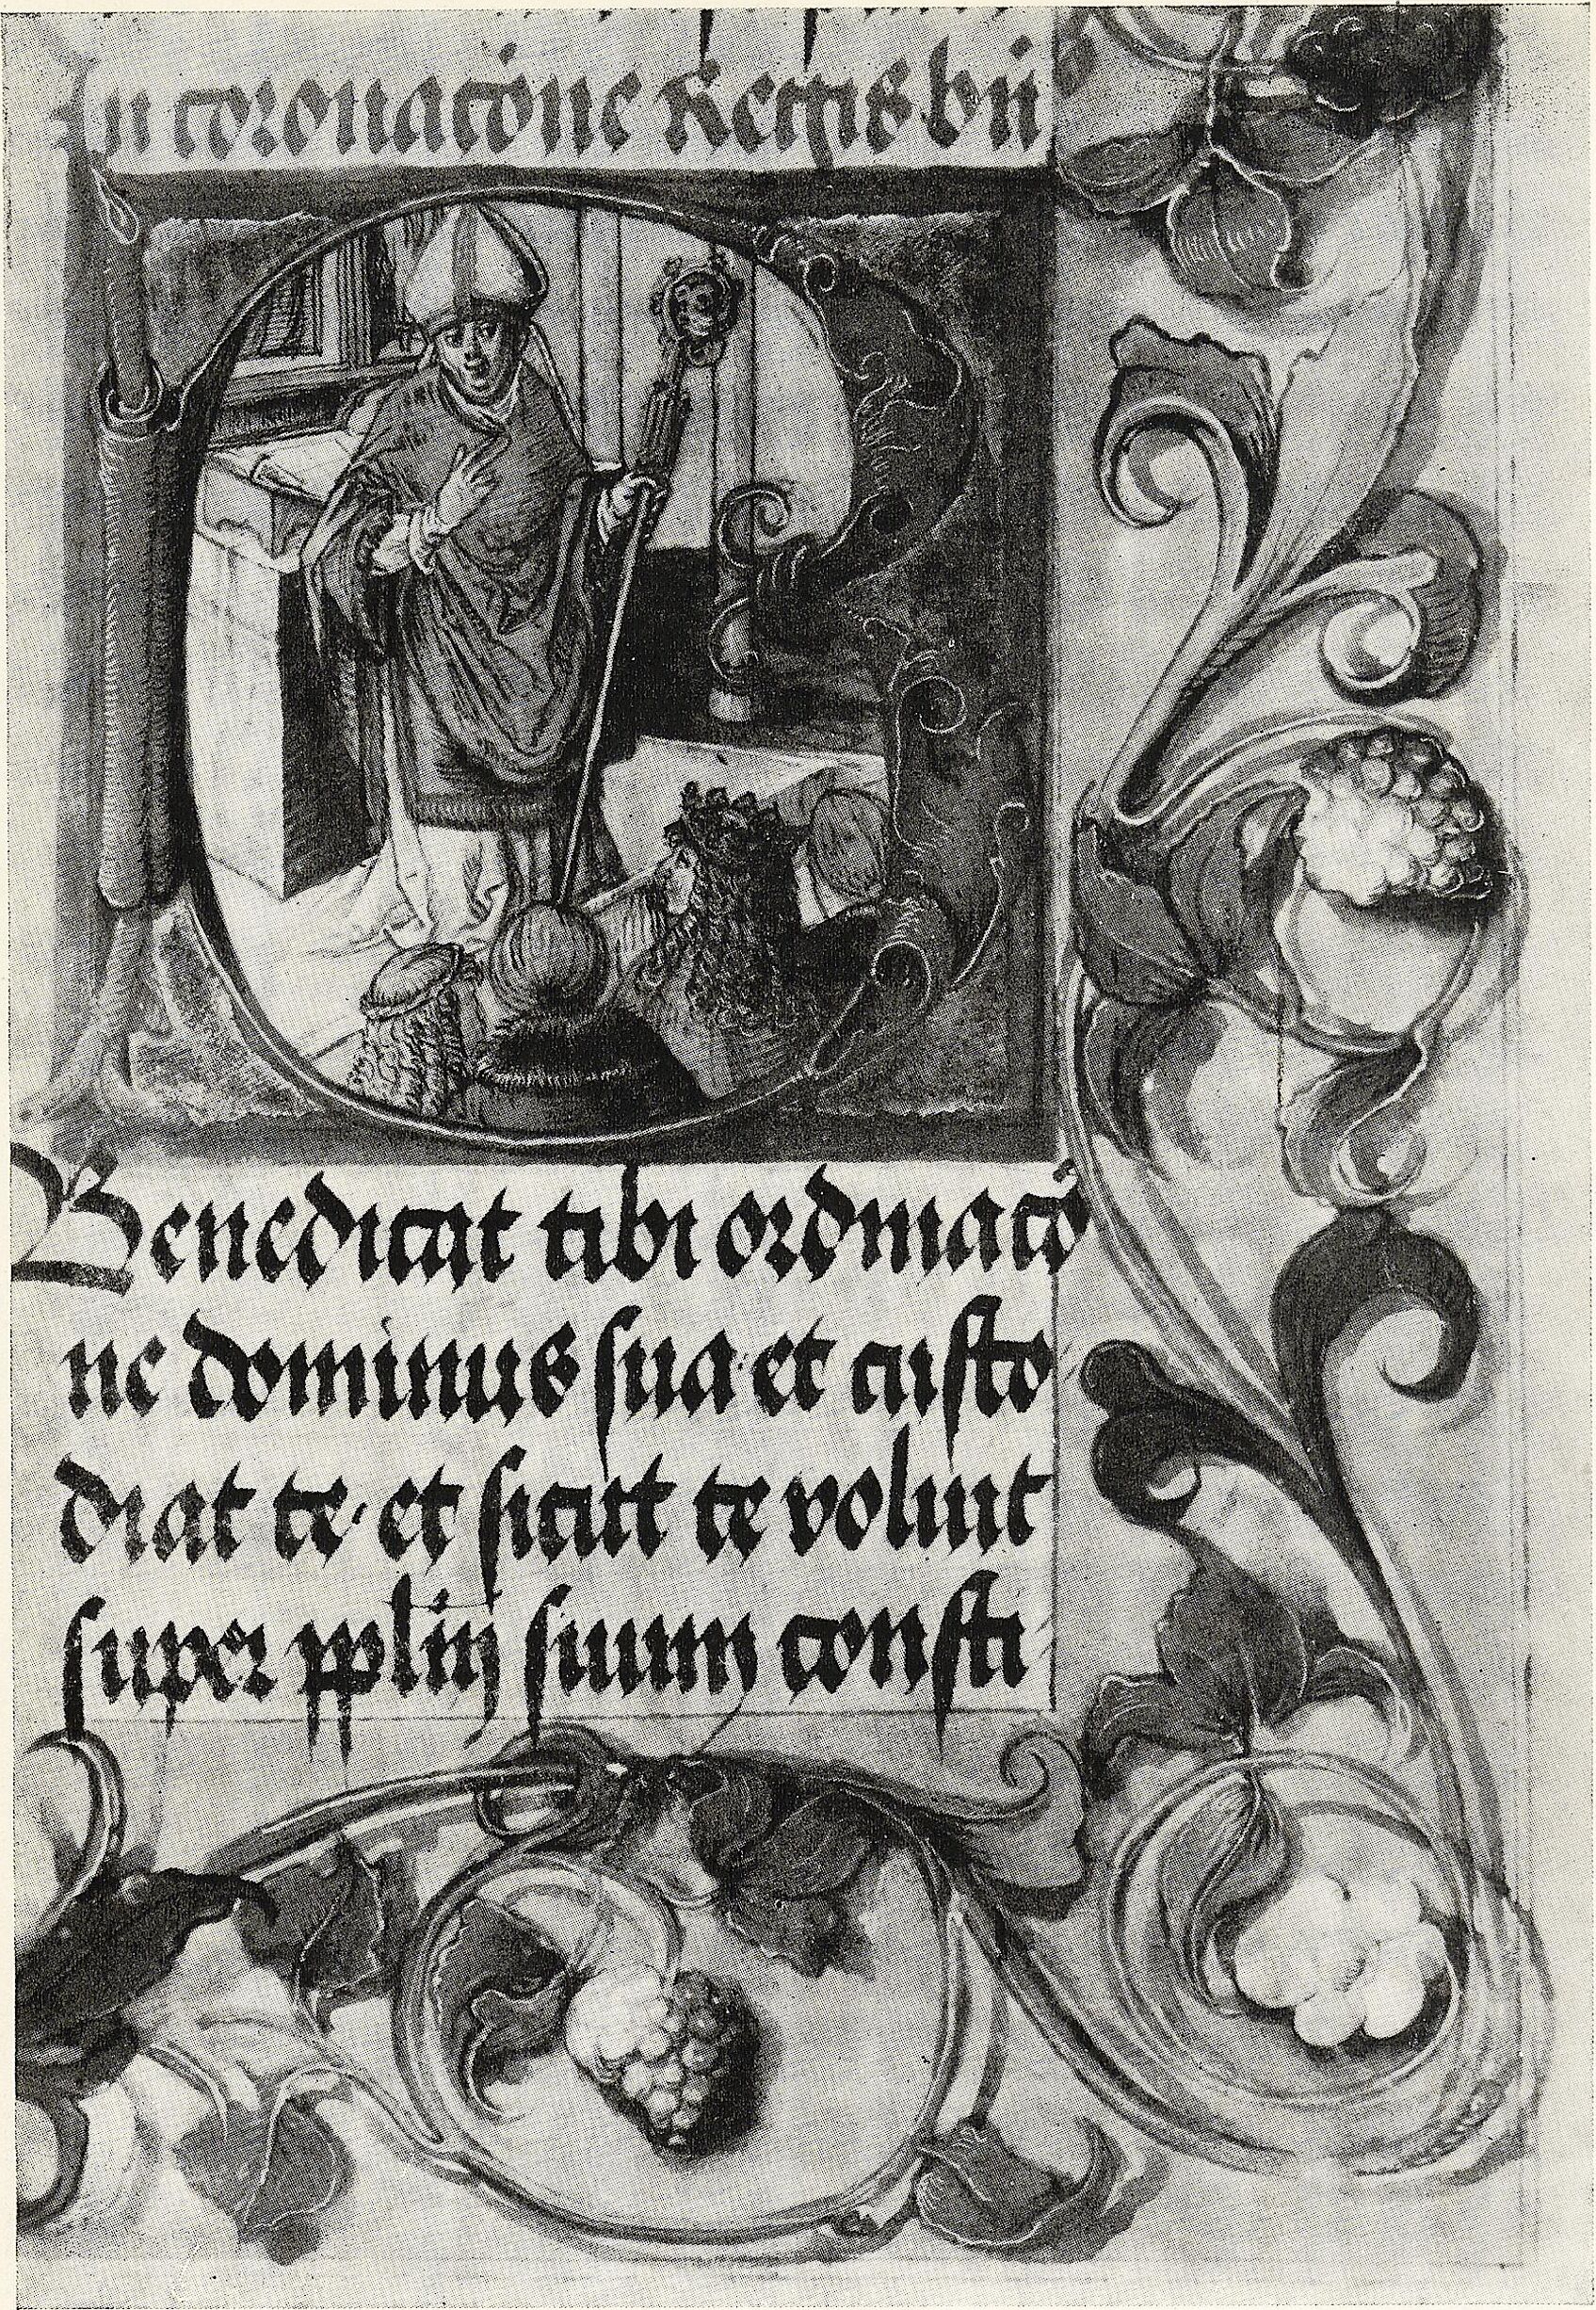 In coronacōne Regis bn̄
Benedicat tibi ordinacō
ne dominus sua· et custo
diat te· et sicut te voluit
super ppl̄m suum consti